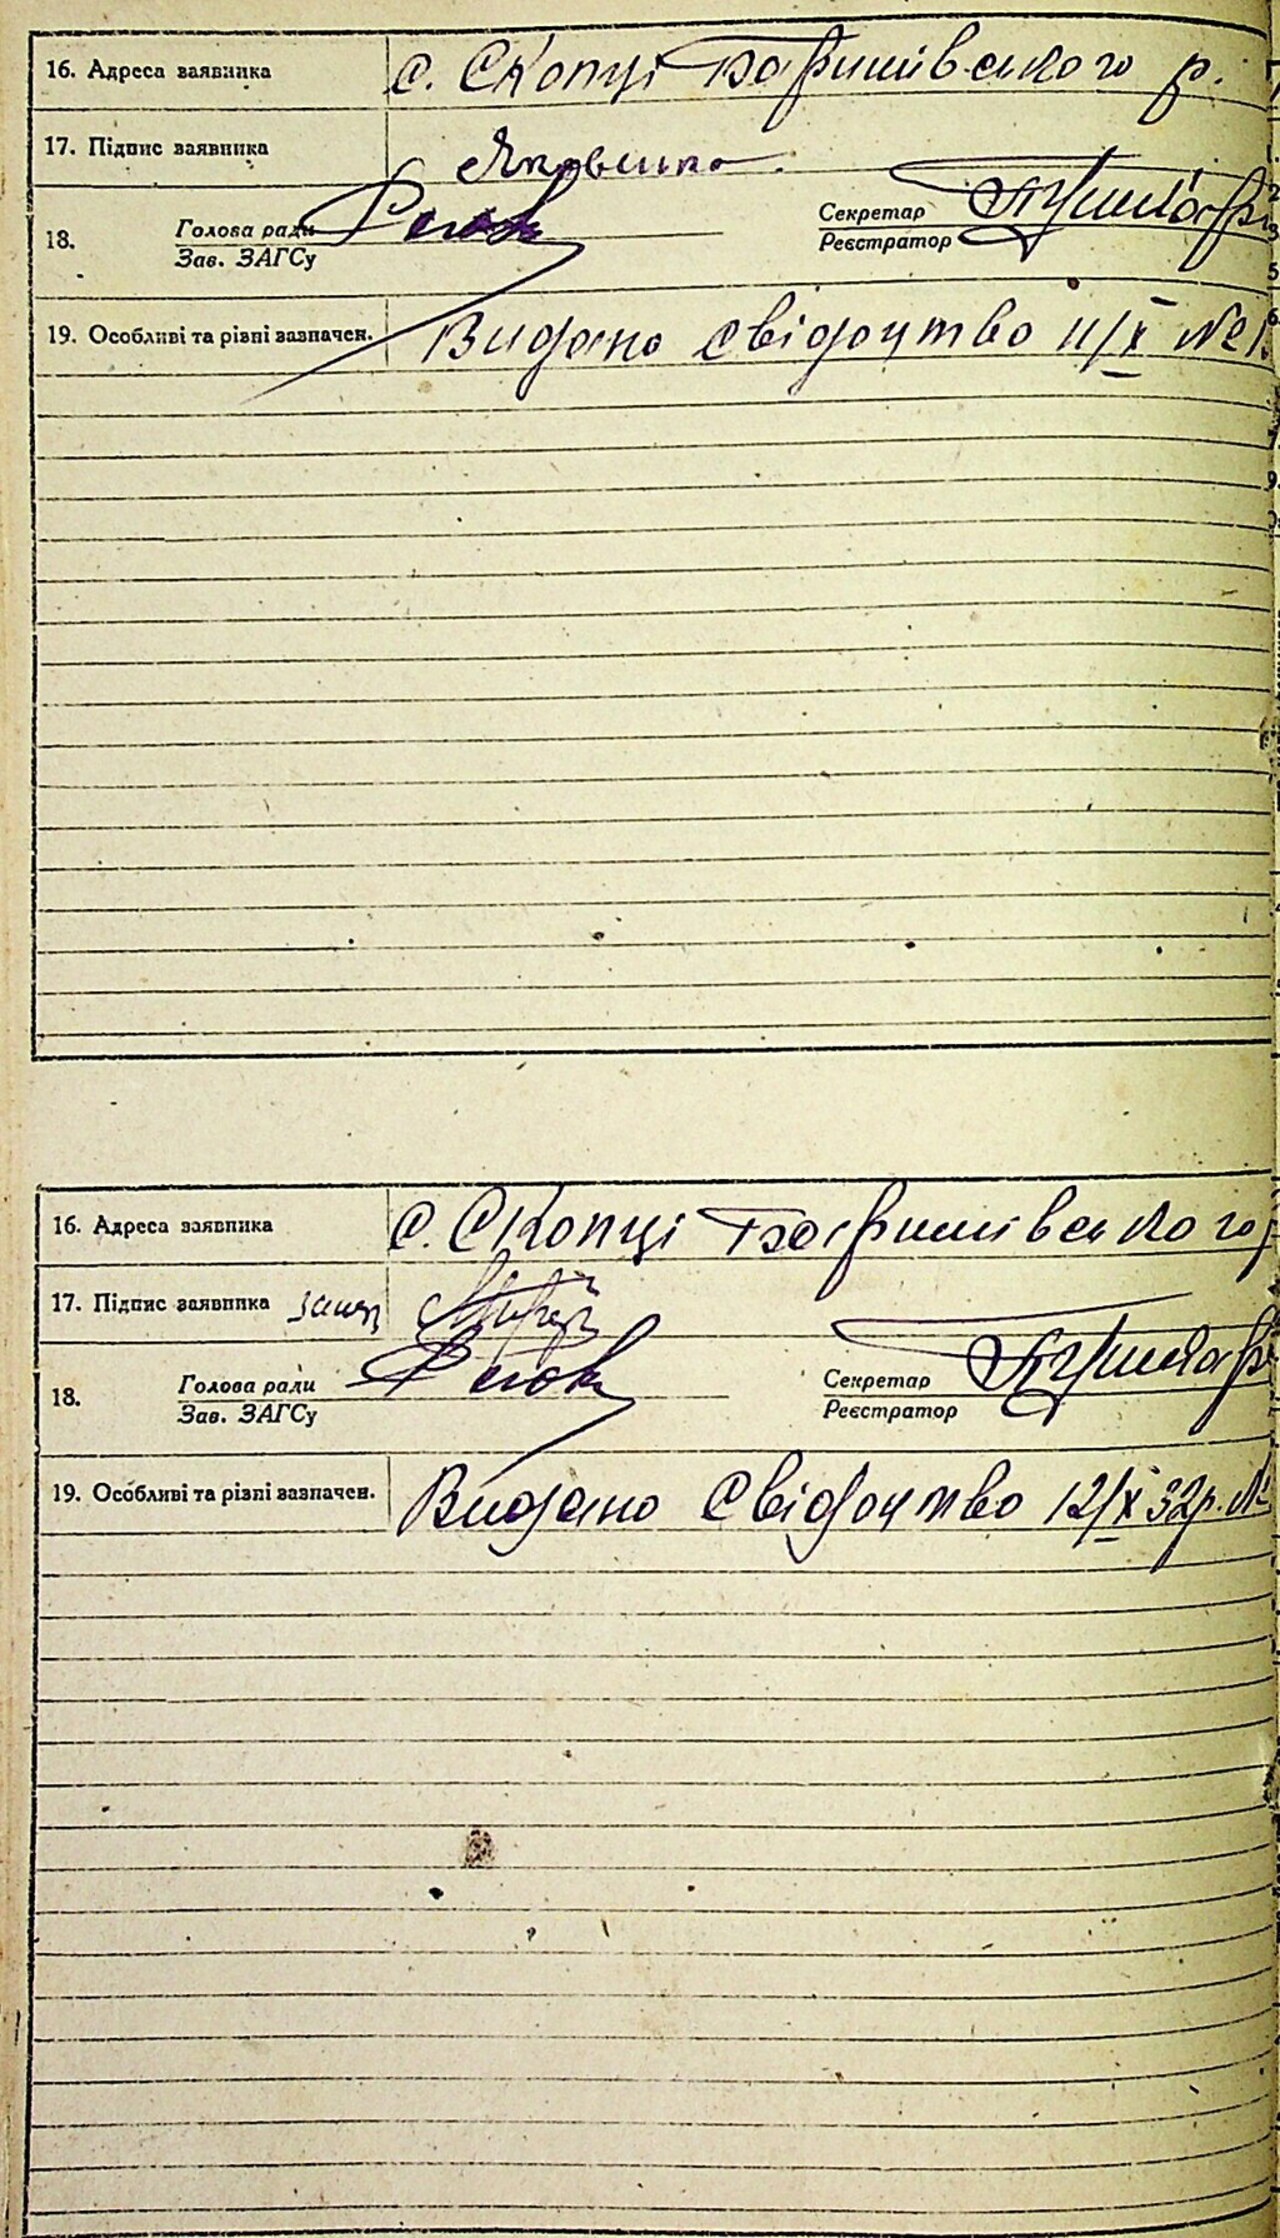 16. Адреса заявника с. Скопці Баришівського р.
17. Підпис заявника Яковенко
18. Голова ради Секретар
Зав. ЗАГСу Реєстратор
19. Особливі та різні зазначен. Видано свідоцтво 11/X №
16. Адреса заявника с. Скопці Баришівського
17. Підпис заявника
18. Голова ради Секретар
Зав. ЗАГСу Реєстратор
19. Особливі та різні зазначен. Видано свідоцтво 12/X 32р. №